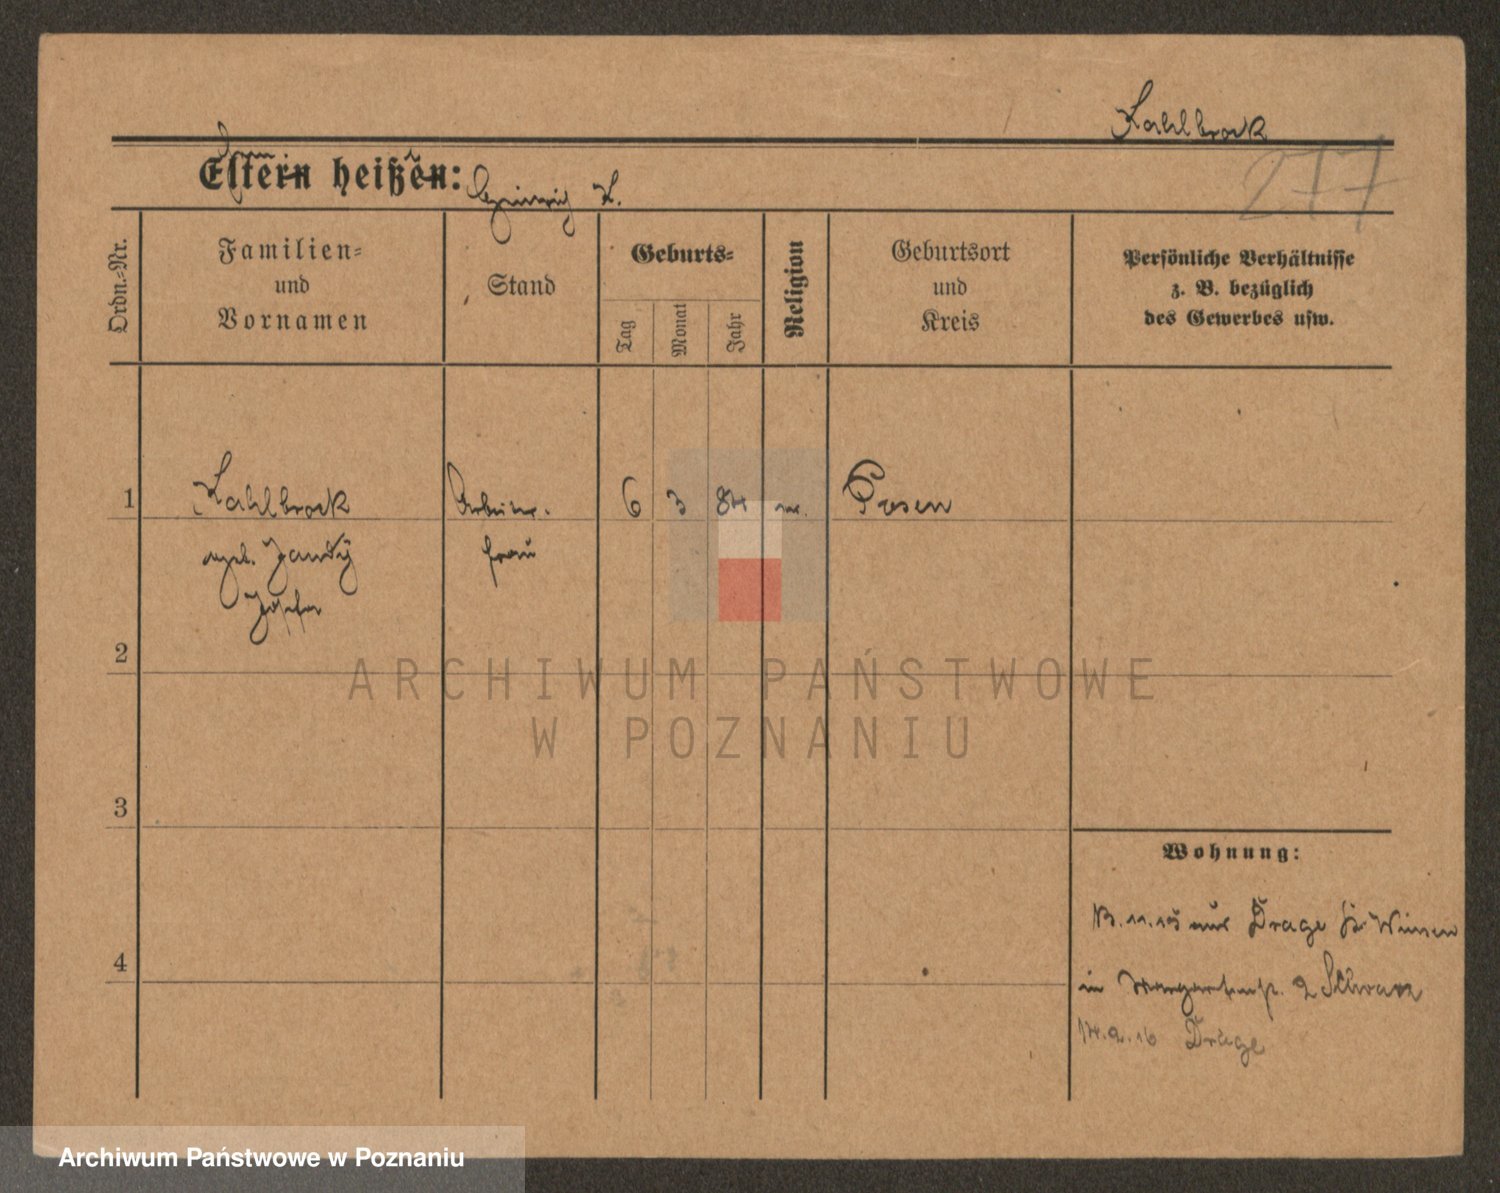 Kahlbrock
277
Eltern heißen:
Heinrich K.
Ordn.=Nr.
Familien= und Vornamen
Stand
Geburts=
Tag
Monat
Jahr
Religion
Geburtsort und Kreis
Persönliche Verhältnisse
z. B. bezüglich
des Gewerbes usw.
1
Kahlbrock
Arbeiter-
6
3
84
Posen
geb. Jandy
frau
Josefa
2
3
4
Wohnung:
13.11.15 aus Drage
in 2 Schwarz
14.2.16 Drage
ARCHIWUM PAŃSTWOWE
W POZNANIU
Archiwum Państwowe w Poznaniu